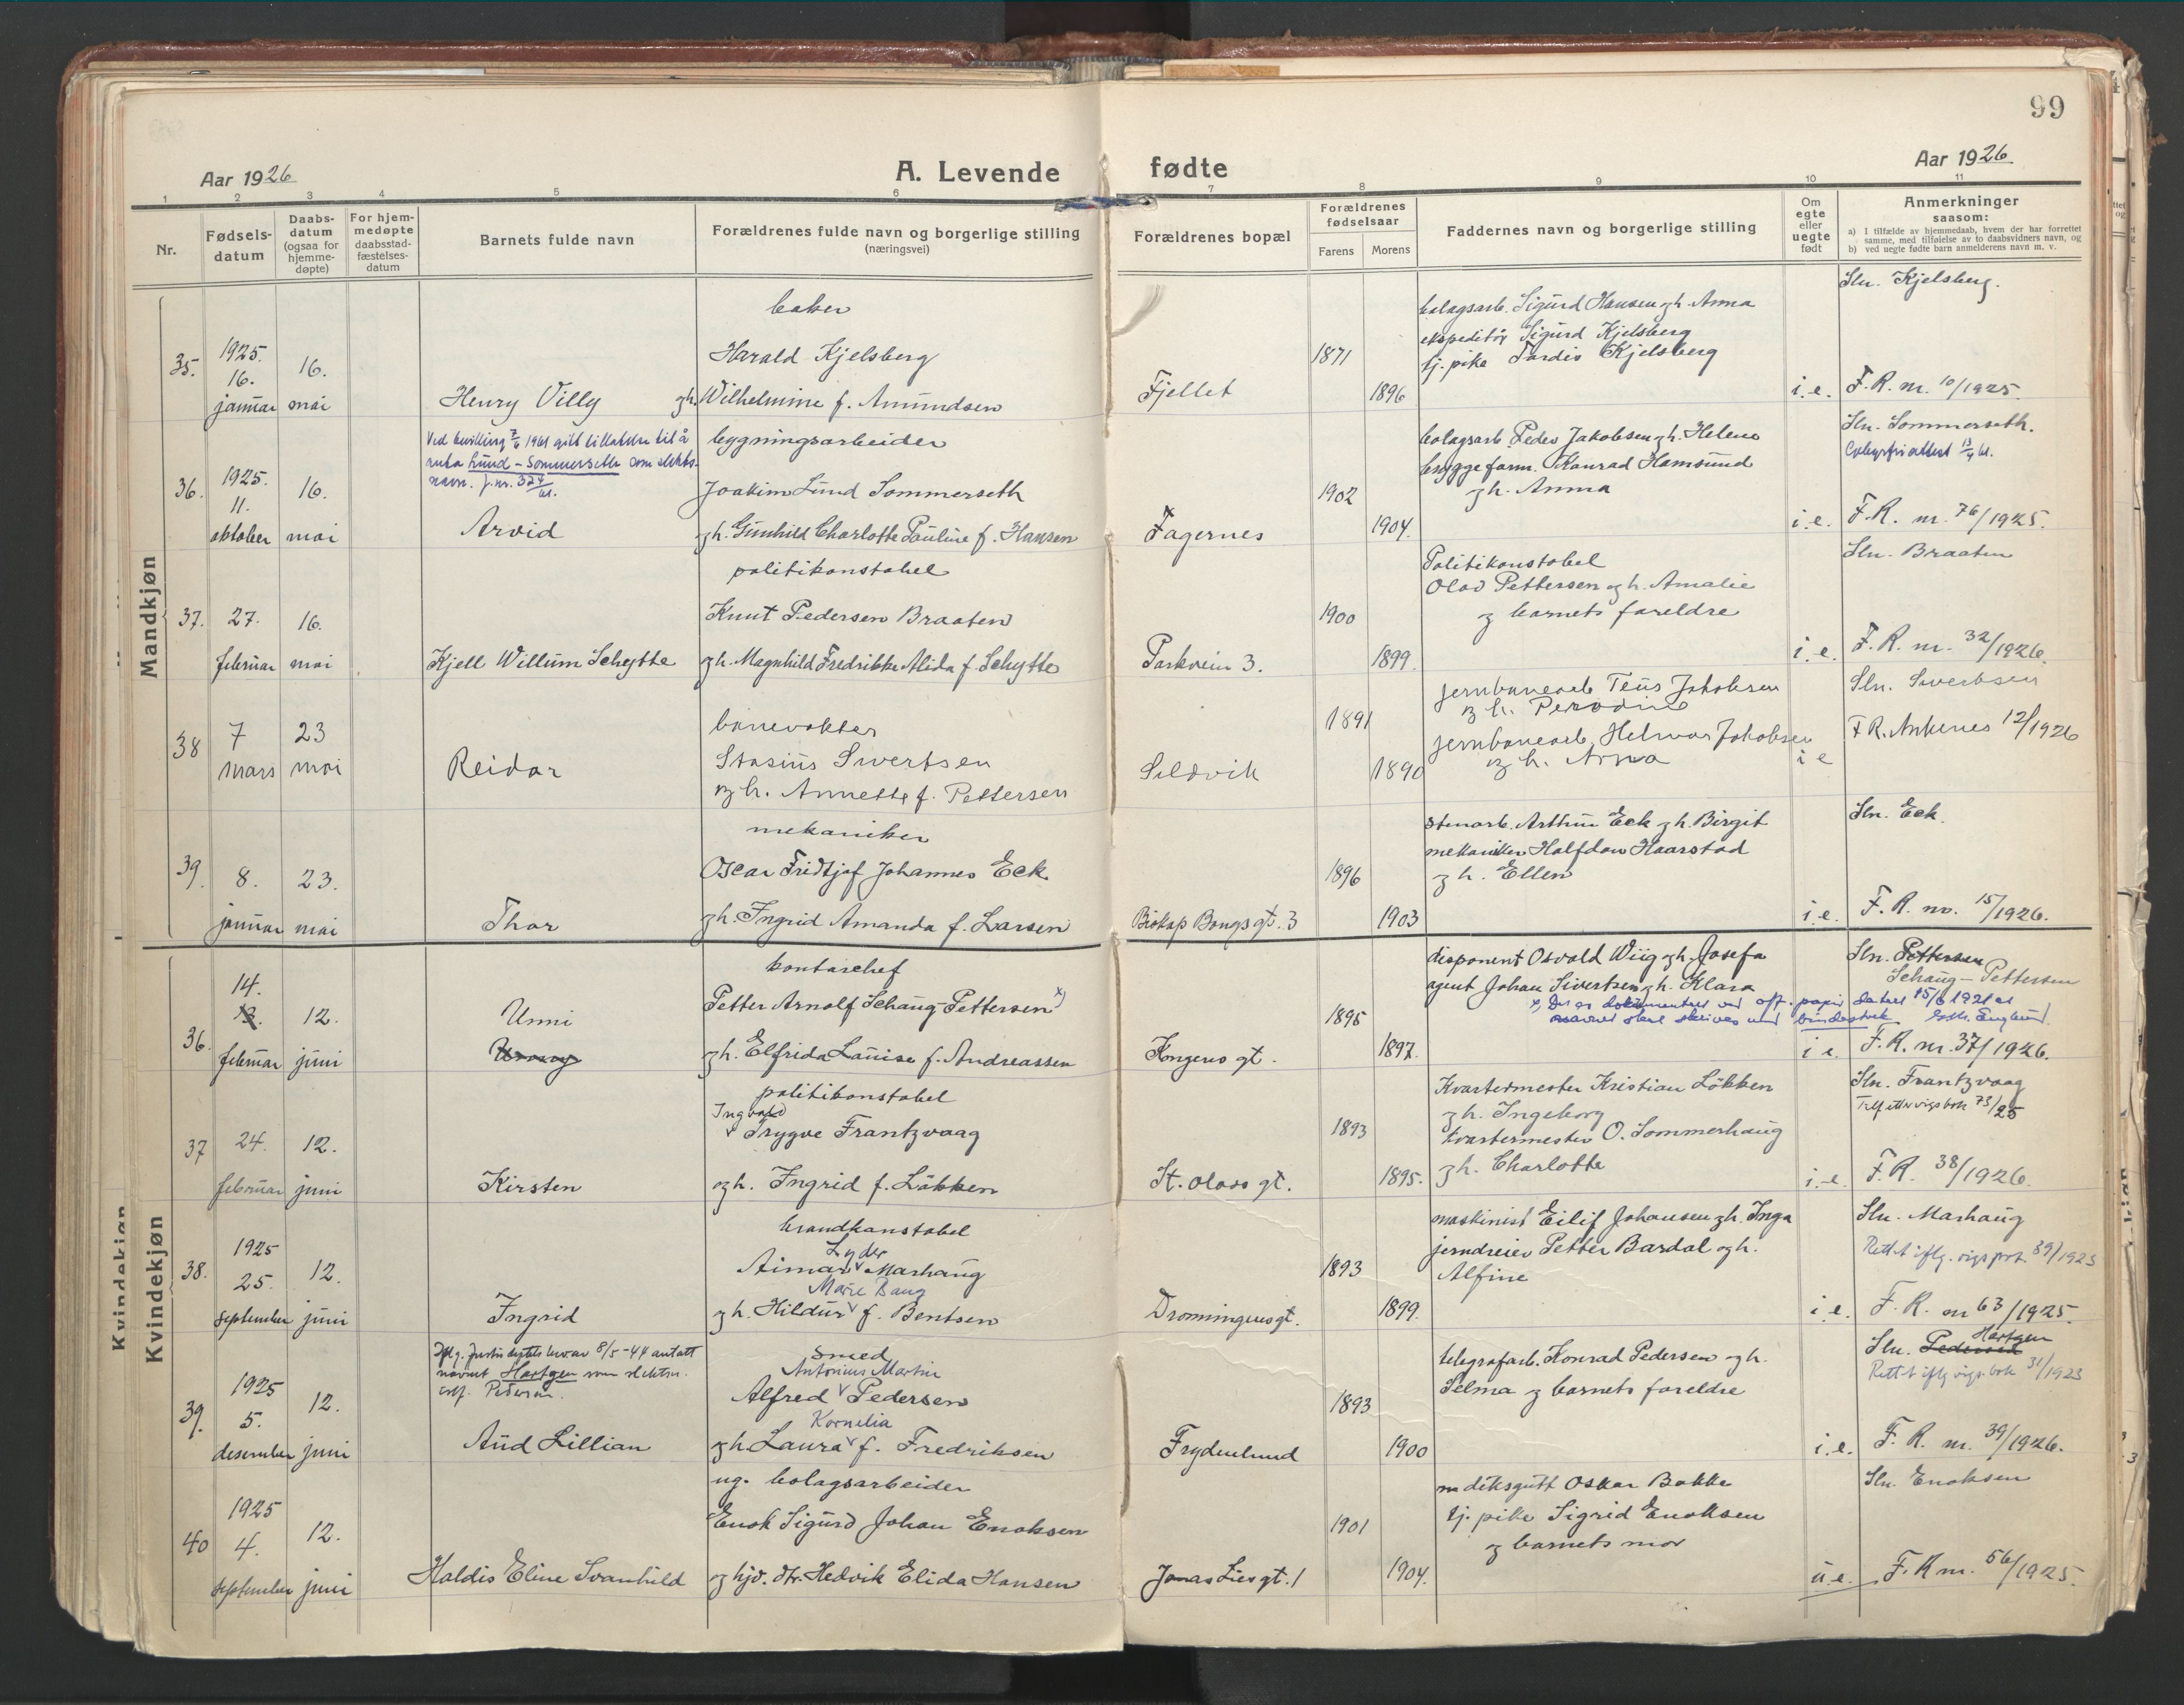 99
Aar 1926
A. Levende fødte
Aar 1926
1 2 3 4 5 6 7 8 9 10 11
Nr.
Fødsels-datum
Daabs-datum (ogsaa for hjemme-døpte)
For hjem-medøpte daabsstad-fæstelses-datum
Barnets fulde navn
Forældrenes fulde navn og borgerlige stilling (næringsvei)
Forældrenes bopæl
Forældrenes fødselsaar
Farens Morens
Faddernes navn og borgerlige stilling
Om egte eller uegte født
Anmerkninger
saasom:
a) I tilfælde av hjemmedaab, hvem der har forrettet samme, med tilføielse av to daabsvidners navn, og
b) ved uegte fødte barn anmelderens navn m. v.
Mandkjøn
35. 1925. 16. januar
16. mai
Henry Villy
baker
Harald Kjelsberg
og h. Wilhelmine f. Amundsen
Fjellet
1871
1896
bolagsarb. Sigurd Hansen og h. Anna
ekspeditör Sigurd Kjelsberg
tj. pike Tordis Kjelsberg
i.e.
Sln. Kjelsberg.
F.R. nr. 10/1925.
36. 1925. 11. oktober
16. mai
Ved bevilling 7/6 1961 gitt tillatelse til å
anta Lund-Sommerseth som slekts-
navn. j.nr. 374/61.
Arvid
bygningsarbeider
Joakim Lund Sommerseth
og h. Gunhild Charlotte Pauline f. Hansen
Fagernes
1902
1904.
bolagsarb. Peder Jakobsen og h. Helene
bryggeform. Konrad Hamsund
og h. Anna
i.e.
Sln. Sommerseth.
F.R. nr. 76/1925.
37. 27. februar
16. mai
Kjell Willum Schytte
politikonstabel
Knut Pedersen Braaten
og h. Magnhild Fredrikke Alida f. Schytte
Parkvein 3.
1900
1899.
Politikonstabel
Olav Pettersen og h. Amalie
og barnets foreldre
i.e.
Sln. Braaten
F.R. nr. 32/1926.
38 7 mars
23 mai
Reidar
banevokter
Stasius Sivertsen
og h. Annette f. Pettersen
Sildvik
1891
1890
jernbanearb. Teus Jakobsen
og h. Perodine
jernbanearb. Helmar Jakobsen
og h. Anna
i e
Sln. Sivertsen
F R. Ankenes 12/1926
39. 8. januar
23. mai
Thor
mekaniker
Oscar Fridtjof Johannes Eck
og h. Ingrid Amanda f. Larsen
Biskop Bangs gt. 3
1896
1903
stenarb. Arthur Eck og h. Birgit
mekaniker Halfdan Haarstad
og h. Ellen
i.e.
Sln. Eck.
F.R. no. 15/1926.
Kvindekjøn
Kvindekjøn
36. 14. 13. februar
12. juni
Unni
kontorchef
Petter Arnolf Schaug-Pettersen x)
og h. Elfrida Louise f. Andreassen
Kongens gt.
1895
1897.
disponent Osvald Wiig og h. Josefa
agent Johan Sivertsen og h. Klara
x) Det er dokumentert ved off. papir datert 15/6 1921 at
navnet skal skrives med bindestrek
i e.
Sln. Pettersen
Schaug-Pettersen
F.R. nr. 37/1926.
37 24. februar
12. juni
Kirsten
politikonstabel
Ingvald
Trygve Frantzvaag
og h. Ingrid f. Løkken
St. Olavs gt.
1893
1895.
Kvartermester Kristian Løkken
og h. Ingeborg
kvartermester O. Sommerhaug
og h. Charlotte
i.e.
Sln. Frantzvaag
Tilf. etter vigsbok 73/25
F.R. 38/1926.
38. 1925 25. september
12. juni
Ingrid
brandkonstabel
Lyder
Aimar Marhaug
Marie Baug
og h. Hildur f. Bentsen
Dronningensgt.
1893
1899.
maskinist Eilif Johansen og h. Inga
jerndreier Petter Bardal og h.
Alfine
i.e.
Sln. Marhaug
Rettet iflg. vigsprt. 39/1923
F.R. nr 63/1925.
39. 1925 5. desember
12. juni
Iflg. Justisdeptets brev av 8/5-44 antatt
navnet Hartgen som slektsn.
istf. Pedersen.
Aud Lillian
smed
Antonius Martin
Alfred Pedersen
Kornelia
og h. Laura f. Fredriksen
Frydenlund
1893
1900
telegrafarb. Konrad Pedersen og h.
Selma og barnets foreldre
i.e.
Hartgen
Sln. Pedersen
Rettet iflg vigs.bok 31/1923
F.R. nr. 39/1926.
40 1925 4. september
12. juni
Haldis Eline Svanhild
ug. bolagsarbeider
Enok Sigurd Johan Enoksen
og hjv. dtr. Hedvik Elida Hansen
Jonas Liesgt. 1
1901
1904.
Oskar Bakke
tj. pike Sigrid Enoksen
og barnets mor
u.e.
Sln. Enoksen
F.R nr. 56/1925.